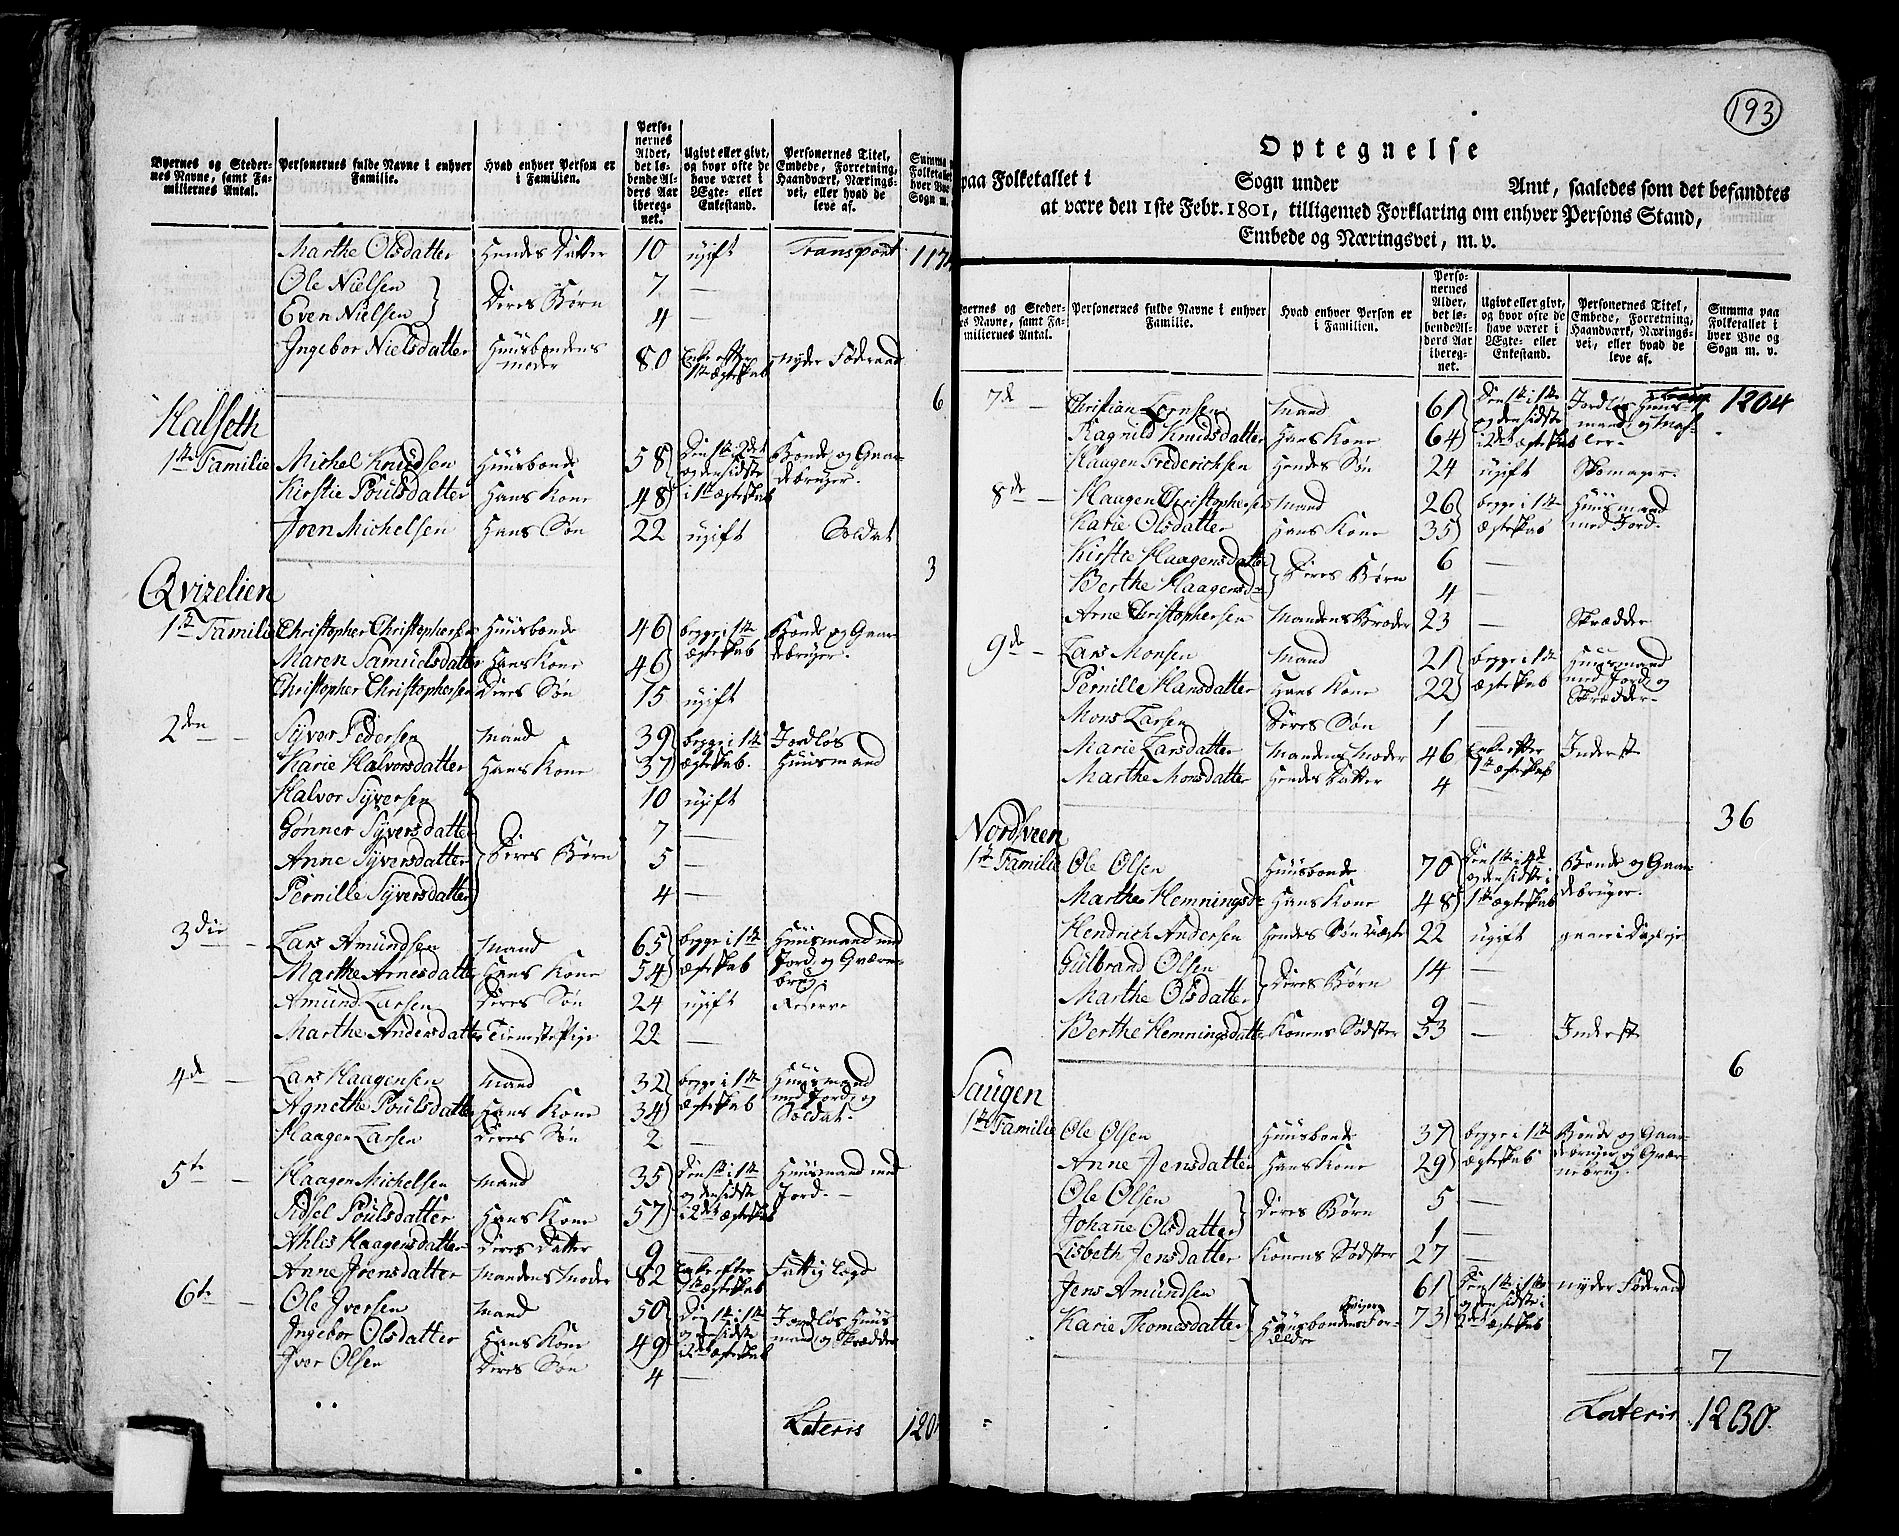 Byernes og Steder-
nes Navne, samt Fa-
miliernes Antal.
Personernes fulde Navne i enhver
Familie.
Hvad enhver Person er
i Familien.
Perso-
nernes
Alder,
det lø-
bende Al-
ders Aar
ibereg-
net.
Ugivt eller givt,
og hvor ofte de
have været i
Ægte- eller
Enkestand.
Personernes Titel,
Embede, Forretning,
Haandværk, Nærings-
vei, eller hvad de
leve af.
Summa
Folketallet
hver Bye
Sogn m.
Marthe Olsdatter Hendes Datter 10 ugift Transport 117
Ole Nielsen 7 —
Even Nielsen } Deres Børn 4 —
Ingebor Nielsdatter Huusbondens moder 80 Enke efter 1ste ægteskab nyder Föderaad
6
Halseth
1ste Familie Michel Knudsen Huusbonde 58 Den 1ste i 2det Bonde og Gaar-
Kirstie Poulsdatter Hans Kone 48 og den sidste i 1ste ægteskab debruger.
Joen Michelsen Hans Søn 22 ugift Soldat
3
Qvizelien
1ste Familie Christopher Christophersen Huusbonde 46 begge i 1ste Bonde og Gaar-
Maren Samuelsdatter Hans Kone 46 ægteskab debruger.
Christopher Christophersen Deres Søn 15 ugift
2den — Syver Pedersen Mand 39 begge i 1ste Jordløs
Karie Halvorsdatter Hans Kone 37 ægteskab. Huusmand
Halvor Syversen 10 ugift
Gønner Syversdatter 7 —
Anne Syversdatter } Deres Børn 5 —
Pernille Syversdatter 4 —
3die — Lars Amundsen Mand 65 begge i 1ste Huusmand med
Marthe Arnesdatter Hans Kone 54 ægteskab Jord og Qværn-
brug
Amund Larsen Deres Søn 24 ugift Reserve
Marthe Andersdatter Tienestepige 22 —
4de — Lars Haagensen Mand 32 begge i 1ste Huusmand
Agnethe Poulsdatter Hans Kone 34 ægteskab med Jord og Soldat.
Haagen Larsen Deres Søn 2 —
5te — Haagen Michelsen Mand 35 Den 1ste i 1ste Huusmand med
Sidsel Poulsdatter Hans Kone 57 og den sidste i 2det ægteskab Jord. —
Ahlis Haagensdatter Deres Datter 9 —
Anne Joensdatter Mandens Moder 82 Enke efter 1ste ægteskab Fattig lægd
6te — Ole Iversen Mand 50 Den 1ste i 1ste Jordløs Huus-
Ingebor Olsdatter Hans Kone 49 og den sidste i 2det ægteskab mand og Skrædder
Iver Olsen Deres Søn 4 —
Lateris 120
193
Optegnelse
paa Folketallet i Sogn under Amt, saaledes som det befandtes
at være den 1ste Febr. 1801, tilligemed Forklaring om enhver Persons Stand,
Embede og Næringsvei, m. v.
Byernes og Steder-
nes Navne, samt Fa-
miliernes Antal.
Personernes fulde Navne i enhver
Familie.
Hvad enhver Person er
i Familien.
Perso-
nernes
Alder,
det lø-
bende Al-
ders Aar
ibereg-
net.
Ugivt eller givt,
og hvor ofte de
have været i
Ægte- eller
Enkestand.
Personernes Titel,
Embede, Forretning,
Haandværk, Nærings-
vei, eller hvad de
leve af.
Summa paa
Folketallet i
hver Bye og
Sogn m. v.
7de — Christian Mand 61 Den 1ste i 1ste Jordløs Huus- 1204
Ragnild Knudsdatter Hans Kone 64 og den sidste i 2det ægteskab mand og
Haagen Frederichsen Hendes Søn 24 ugift Skomager.
8de — Haagen Christophersen Mand 26 begge i 1ste Huusmand
Karie Olsdatter Hans Kone 35 ægteskab med Jord.
Kirstie Haagensdatter 6 —
Berthe Haagensd. } Deres Børn 4 —
Arne Christophersen Mandens Broder 23 — Skrædder
9de — Lars Monsen Mand 21 begge i 1ste Huusmand
Pernille Hansdatter Hans Kone 22 ægteskab med Jord og Skrædder
Mons Larsen Deres Søn 1 —
Marie Larsdatter Mandens Moder 46 Enke efter 1ste ægteskab Inderst
Marthe Monsdatter Hendes Datter 4 —
36
Nordveen
1ste Familie Ole Olsen Huusbonde 70 Den 1ste i 4de Bonde og Gaar-
Marthe Hemningsd. Hans Kone 48 og den sidste i 1ste ægteskab debruger.
Hendrich Andersen Hendes Søn 22 ugift
Gulbrand Olsen 14 —
Marthe Olsdatter } Deres Børn 9 —
Berthe Hemningsdatter Konens Södster 53 — Inderst
6
Saugen
1ste Familie Ole Olsen Huusbonde 37 begge i 1ste Bonde og Gaar-
Anne Jensdatter Hans Kone 29 ægteskab debruger og Qvær-
nebrug.
Ole Olsen 5 —
Johane Olsdatter } Deres Børn 1 —
Lisbeth Jensdatter Konens Södster 27 —
Jens Amundsen 61 Den 1ste i 1ste nyder Föderaad
Karie Thomasdatter } Huusbondens For-
ældre 73 og den sidste i 2det ægteskab
7
Lateris 1230.